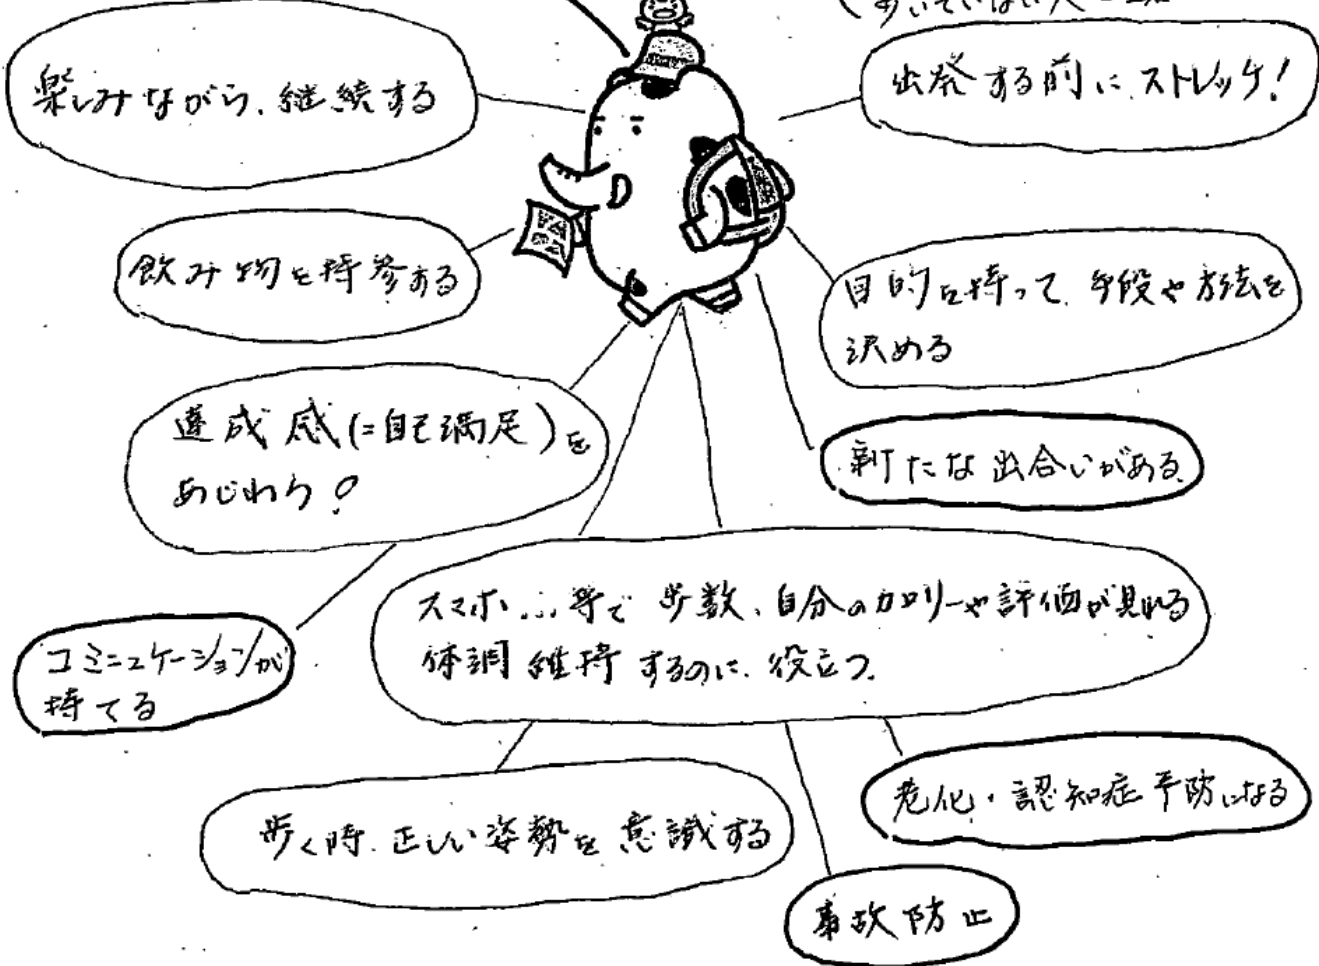 楽しみながら、継続する
出発する前に、ストレッチ!
飲み物を持参する
目的を持って、手段や方法を
決める
達成感(=自己満足)を
あじわう!
新たな出合いがある
スマホ...等で歩数、自分のカロリーや評価が見れる
体調維持するのに、役立つ。
コミニュケーションが
持てる
歩く時、正しい姿勢を意識する
老化・認知症予防になる
事故防止